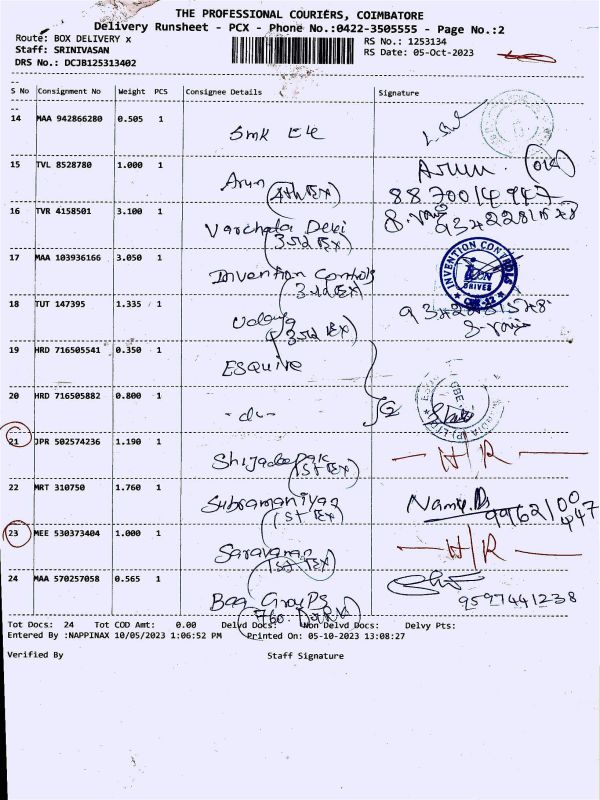 THE PROFESSIONAL COURIERS, COIMBATORE
Delivery Runsheet - PCX - Phone No.:0422-3505555 - Page No.:2
Route: BOX DELIVERY x
RS No.: 1253134
Staff: SRINIVASAN
RS Date: 05-Oct-2023
DRS No.: DCJB125313402
S No Consignment No Weight PCS Consignee Details Signature
14 MAA 942866280 0.505 1 Smk
15 TVL 8528780 1.000 1 Arun Arun
(4th Ex)
16 TVR 4158501 3.100 1 Varchada Devi
(3rd Ex)
17 MAA 103936166 3.050 1 Invention Controls INVENTION CONTROLS
(3rd Ex) DRIVES
18 TUT 147395 1.335 1
(3rd Ex)
19 HRD 716505541 0.350 1 ESQUIRE
20 HRD 716505882 0.800 1 - do -
21 JPR 502574236 1.190 1 H/R
(1st Ex)
22 MRT 310750 1.760 1 Subramaniyan
(1st Ex)
23 MEE 530373404 1.000 1 Saravanan H/R
(1st Ex)
24 MAA 570257058 0.565 1 Bag Groups 9597441238
Tot Docs: 24 Tot COD Amt: 0.00 Delvd Docs: Non Delvd Docs: Delvy Pts:
Entered By :NAPPINAX 10/05/2023 1:06:52 PM Printed On: 05-10-2023 13:08:27
Verified By Staff Signature